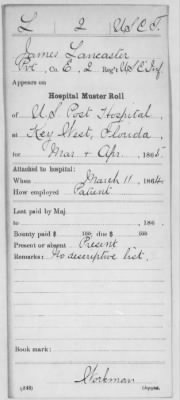 L 2 U.S.C.T.
James Lancaster
Pvt, Co. E, 2 Reg't U S C Inf.
Appears on
Hospital Muster Roll
of U.S. Post Hospital,
at Key West, Florida,
for Mar & Apr, 1865
Attached to hospital:
When March 11, 1864
How employed Patient
Last paid by Maj.
to , 186 .
Bounty paid $ 100 due $ 100
Present or absent Present
Remarks: No descriptive list.
Book mark:
Workman
(343) Copyist.